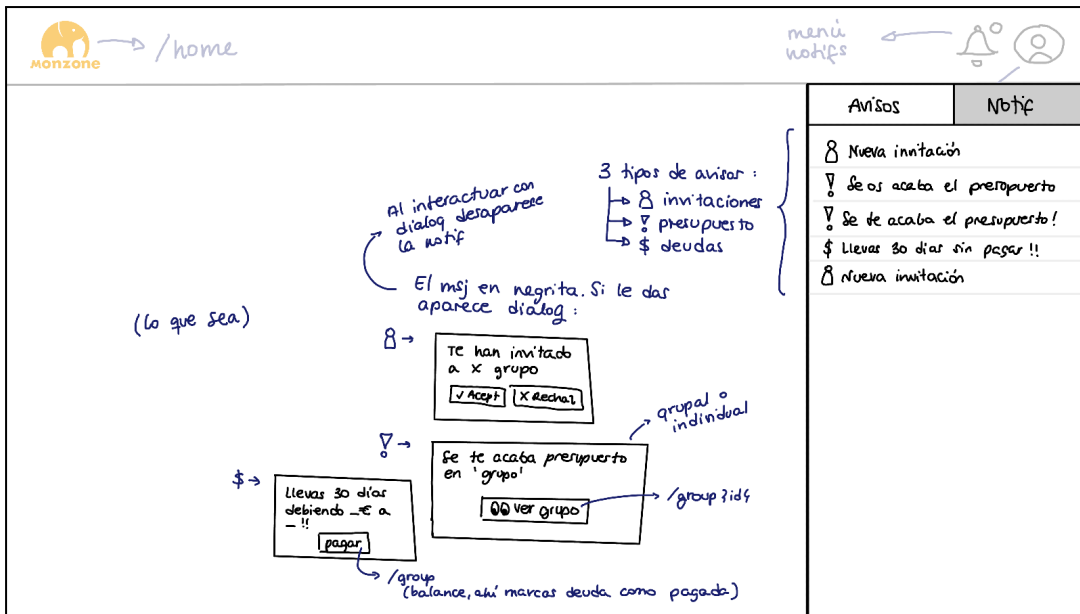 MONZONE
/home
menú
notifs
Avisos
Notif
Nueva invitación
Se os acaba el presupuesto
Se te acaba el presupuesto!
$ Llevas 30 días sin pagar !!
Nueva invitación
3 tipos de avisos :
invitaciones
presupuesto
$ deudas
Al interactuar con
dialog desaparece
la notif
El msj en negrita. Si le das
aparece dialog :
(lo que sea)
Te han invitado
a X grupo
✓ Acept
X Rechaz
grupal o
individual
Se te acaba presupuesto
en 'grupo'
ver grupo
/group {id}
$
Llevas 30 días
debiendo _€ a
_ !!
pagar
/group
(balance, ahí marcas deuda como pagada)